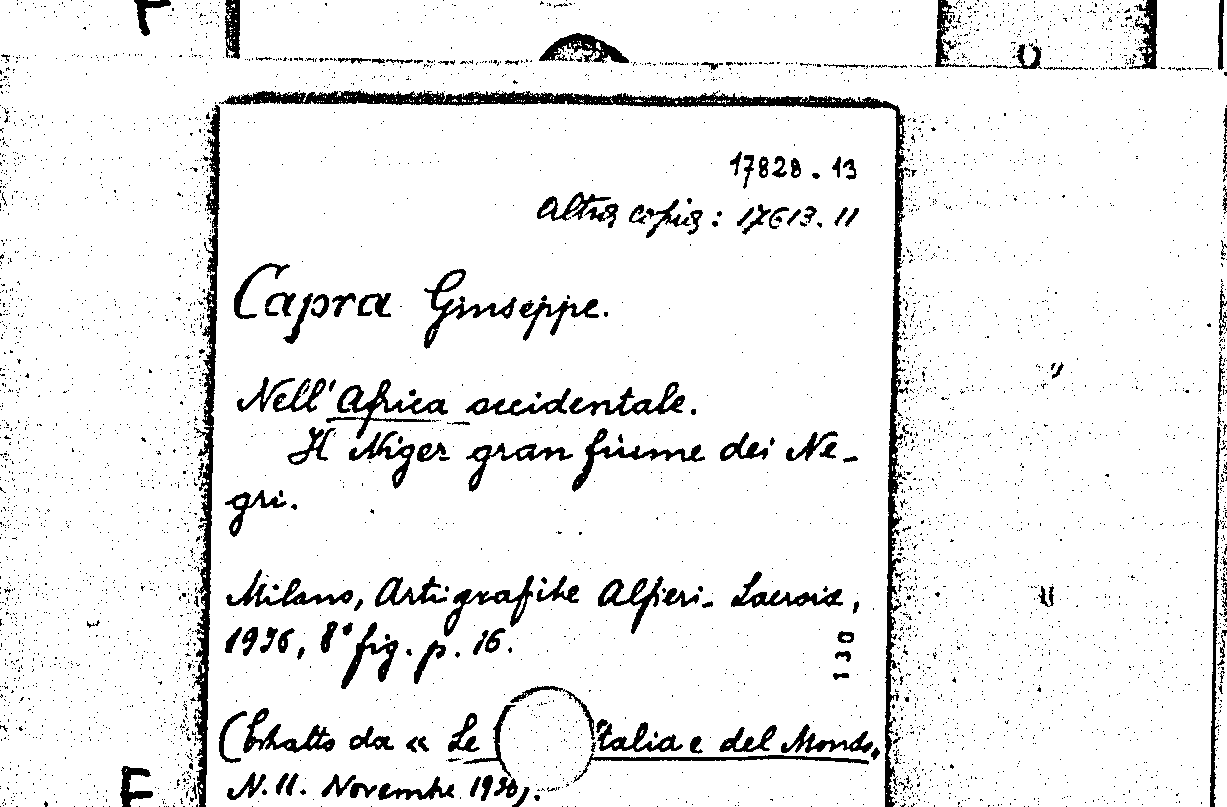 F
17828 . 13
Altra copia : 17613. 11
Capra Giuseppe.
Nell' Africa occidentale.
Il Niger gran fiume dei Ne-
gri.
Milano, Arti grafiche Alfieri - Lacroix,
1936, 8° fig. p. 16.
130
(Estratto da « Le Italia e del Mondo,
N. 11. Novembre 1936).
F